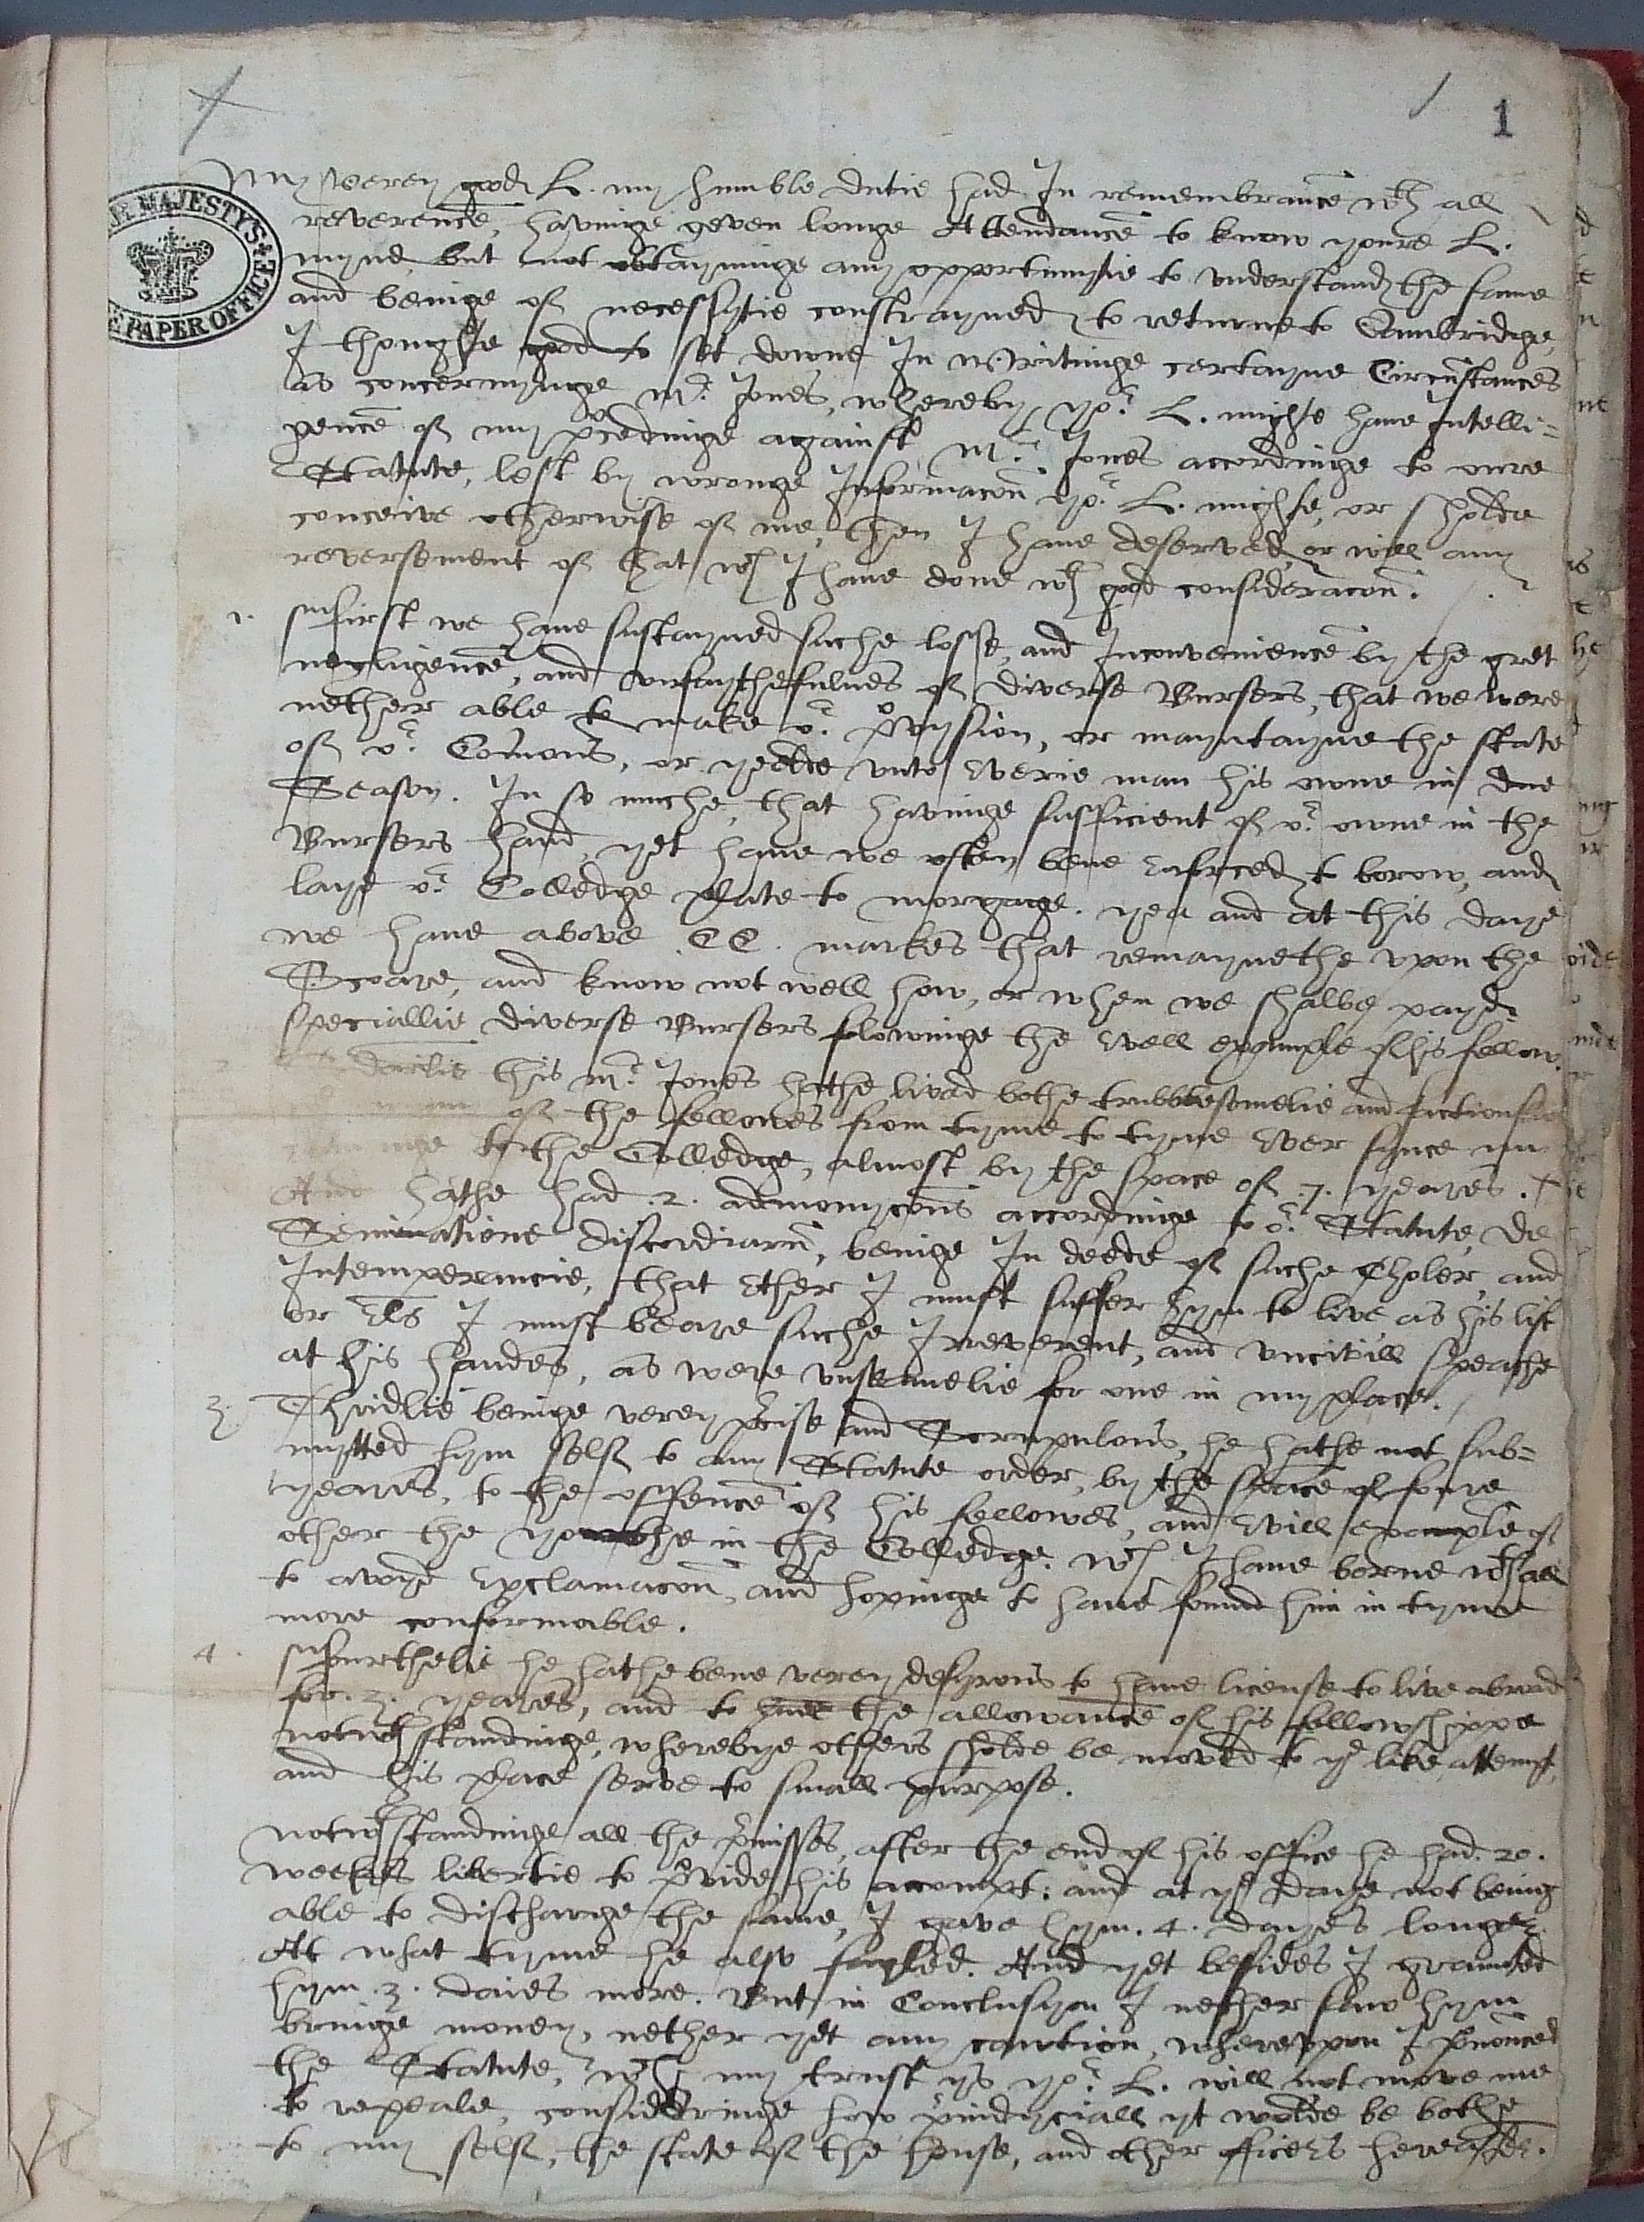 1
HER MAJESTY'S
E PAPER OFFICE
My verey good L. my humble dutie had In remembrance wth all
reverence, havinge geven longe Attendance to know youre L.
mynd, but not obtayninge any opportunytie to understand the same
and beinge of necessytie constrayned to returne to Cambridge,
I thoughte good to set downe In Writinge certayne Circumstances
as concernynge Mr. Jones, whereby yor. L. mighte have Intelli=
gence of my procedinge against Mr. Jones accordinge to oure
Statute, lest by wronge Informacon yor. L. mighte, or sholde
conceive otherwise of me, then I have deserved, or will any
reversement of that wch I have done wth good consideracon.
1. ffirst we have sustayned suche losse, and Inconvenience by the gret
negligence, and unfaythefulnes of diverse Bursers, that we were
nether able to make or. provysion, or mayntayne the state
of or. Comons, or yeelde unto everie man his owne in due
Season. In so muche, that havinge sufficient of or. owne in the
Bursers hand, yet have we often bene enforced to borow, and
laye or. Colledge plate to morgage. yea and at this daye
we have above CC. markes that remaynethe upon the
Scoare, and know not well how, or when we shalbe payd
speciallie diverse Bursers folowinge the evell exsample of his fellow.
this Mr. Jones hathe lived bothe trubblesomelie and
of the fellowes from tyme to tyme ever synce my
to the Colledge, almost by the space of .7. yeares.
And hathe had .2. admonycons accordinge to or. Statute, De
Seminatione discordiarum, beinge In deede of suche Choler, and
Intemperancie, that ether I must suffer hym to live as his list
or els I must beare suche Irreverent, and uncivill speache
at his handes, as were unseemelie for one in my place.
3. Thirdlie beinge verey precise and Scrupulous, he hathe not sub=
mytted hym self to any Statute order, by the space of foure
yeares, to the offence of his fellowes, and evill example of
other the youthe in the Colledge. wch I have borne wthall
to avoyd exclamacon, and hopinge to have found him in tyme
more conformable.
4. ffourthelie he hathe bene verey desyrous to have license to live abroad
for .3. yeares, and to have the allowance of his fellowshippe
notwthstandinge, wherebye others sholde be moved to ye like attempt,
and his place serve to small purpose.
Notwthstandinge all the premisses, after the end of his office he had .20.
weekes libertie to provide his accompt: and at ye daye not being
able to discharge the same, I gave hym .4. dayes longer
At what tyme he also fayled. And yet besides I graunted
hym .3. daies more. But in Conclusyon I nether saw hym
bringe money, nether yet any caution, whereuppon I pronounced
the Statute, wch my trust ys yor. L. will not move me
to repeale, consideringe how preiudyciall yt wolde be bothe
to my self, the state of the house, and other officers hereafter.